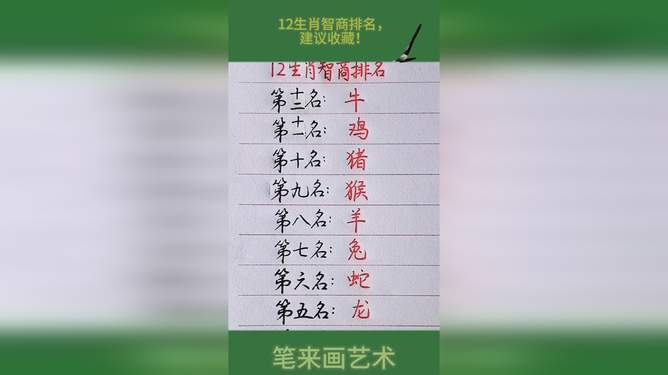 12生肖智商排名，
建议收藏！
12生肖智商排名
第十二名：牛
第十一名：鸡
第十名：猪
第九名：猴
第八名：羊
第七名：兔
第六名：蛇
第五名：龙
笔来画艺术